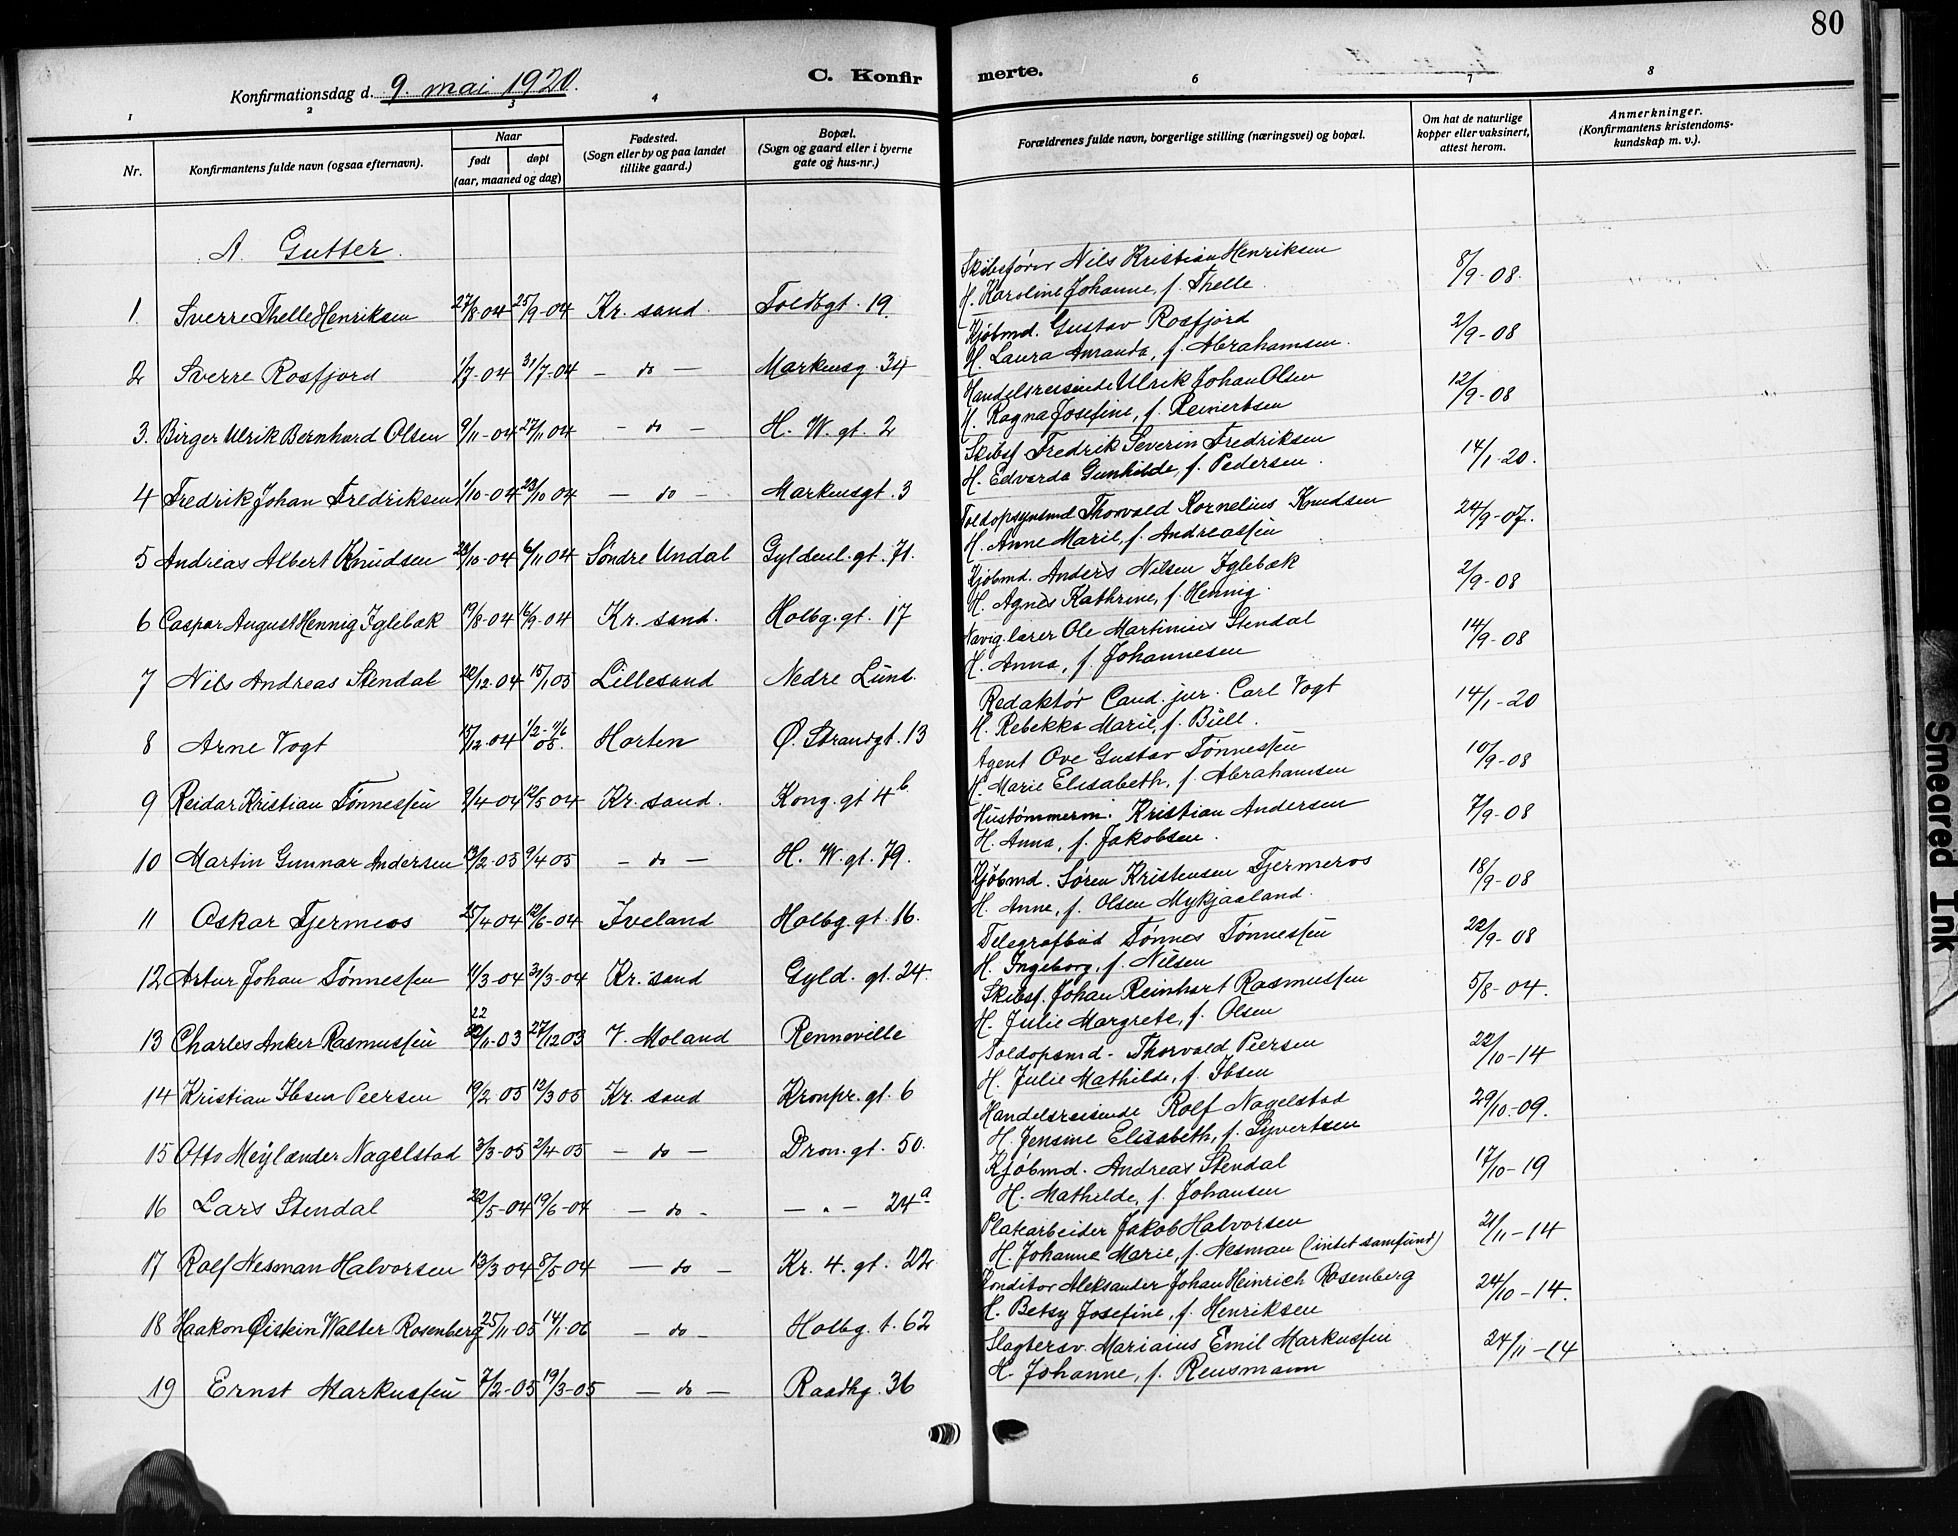 80
Konfirmationsdag d. 9. mai 1920.
C. Konfirmerte.
1 2 3 4 6 7 8
Nr.
Konfirmantens fulde navn (ogsaa efternavn).
Naar
født
døpt
(aar, maaned og dag)
Fødested.
(Sogn eller by og paa landet
tillike gaard.)
Bopæl.
(Sogn og gaard eller i byerne
gate og hus-nr.)
Forældrenes fulde navn, borgerlige stilling (næringsvei) og bopæl.
Om hat de naturlige
kopper eller vaksinert,
attest herom.
Anmerkninger.
(Konfirmantens kristendoms-
kundskap m. v.).
A Gutter.
1. Sverre Thelle Henriksen 27/8-04 25/9-04 Kr. sand. Toldbgt. 19.
Skibsfører Nils Kristian Henriksen
H. Karoline Johanne, f. Thelle. 8/9-08.
2 Sverre Rosfjord 1/7-04 31/7-04 - do - Markensg. 34
Kjøbmd. Gustav Rosfjord
H. Laura Amanda, f. Abrahamsen. 2/9-08
3. Birger Ulrik Bernhard Olsen 9/11-04 27/11 04 - do - H. W. gt. 2
Handelsreisende Ulrik Johan Olsen
H. Ragna Josefine, f. Reinertsen 12/9-08
4 Fredrik Johan Fredriksen 1/10-04 23/10 04 - do - Markensgt. 3
Skibsf. Fredrik Severin Fredriksen
H. Edvarda Gunhilde, f. Pedersen. 14/1-20.
5 Andreas Albert Knudsen 23/10-04 6/11 04 Søndre Undal Gyldenl. gt. 71.
Toldopsynsmd Thorvald Kornelius Knudsen
H. Anne Marie, f. Andreassen 24/9-07.
6 Caspar August Hennig Iglebæk 19/8-04 16/9-04 Kr. sand. Holbg. gt. 17
Kjøbmd. Anders Nilsen Iglebæk
H. Agnes Kathrine, f. Hennig. 2/9-08
7 Nils Andreas Stendal 20/12-04 15/1 05 Lillesand Nedre Lund.
Navig.lærer Ole Martinius Stendal
H. Anna, f. Johannesen 14/9-08
8 Arne Vogt 15/12-04 1/2-11/6 05. Horten Ø. Strandgt. 13
Redaktør Cand. jur. Carl Vogt
H. Rebekka Marie, f. Bull. 14/1-20
9 Reidar Kristian Tønnessen 9/4-04 12/5 04 Kr. sand. Kong. gt 4b.
Agent Ove Gustav Tønnessen
H. Marie Elisabeth, f. Abrahamsen 10/9-08
10 Martin Gunnar Andersen 13/2-05 9/4 05 - do - H. W. gt. 79.
Hustømmerm. Kristian Andersen
H. Anna, f. Jakobsen. 7/9-08
11 Oskar Tjermeos 25/4 04 12/6-04 Iveland Holbg. gt. 16.
Kjøbmd. Søren Kristensen Tjermeros
H. Anne, f. Olsen Mykjaaland. 18/9-08
12 Artur Johan Tønnessen 11/3-04 31/3-04 Kr. sand Gyld. gt. 24.
Telegrafbud Tønnes Tønnessen
H. Ingeborg, f. Nilsen 22/9-08
22
13 Charles Anker Rasmussen 22/11-03 27/12 03 V. Moland Renneville
Skibsf. Johan Reinhart Rasmussen
H. Julie Margrete, f. Olsen 5/8-04.
14 Kristian Ibsen Peersen 19/2 05 12/3 05 Kr. sand Kronpr. gt. 6
Toldopsmd. Thorvald Peersen
H. Julie Mathilde, f. Ibsen 22/10-14
15 Otto Meylænder Nagelstad 3/3-05 2/4-05 - do - Dron. gt. 50.
Handelsreisende Rolf Nagelstad
H. Jensine Elisabeth, f. Syvertsen 29/10-09.
16 Lars Stendal 22/5-04 19/6-04 - do - - " - 24a
Kjøbmd. Andreas Stendal
H. Mathilde, f. Johansen 17/10-19
17 Rolf Nesman Halvorsen 13/3 04 8/5 04 - do - Kr. 4. gt. 22
Platearbeider Jakob Halvorsen
H. Johanne Marie, f. Nesman (intet samfund) 21/11-14
18 Haakon Øistein Walter Rosenberg 25/11-05 14/1-06 - do - Holbg. t. 62
Konditor Aleksander Johan Heinrich Rosenberg
H. Betsy Josefine, f. Henriksen 24/10-14.
19) Ernst Markussen 7/2-05 19/3-05 - do - Raadhg. 36
Slagtersv. Mariaius Emil Markussen
H. Johanne, f. Reusmann 24/11-14
Smeared Ink